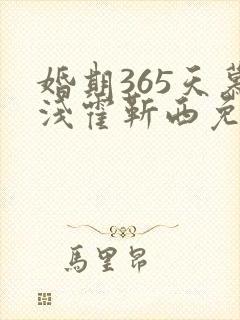 婚期365天慕
浅霍靳西免
馬里昂